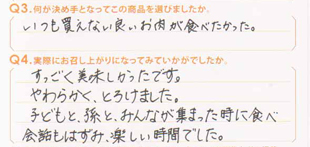 Q3.何が決め手となってこの商品を選びましたか。
いつも買えない良いお肉が食べたかった。
Q4.実際にお召し上がりになってみていかがでしたか。
すっごく美味しかったです。
やわらかく、とろけました。
子どもと、孫と、みんなが集まった時に食べ
会話もはずみ、楽しい時間でした。